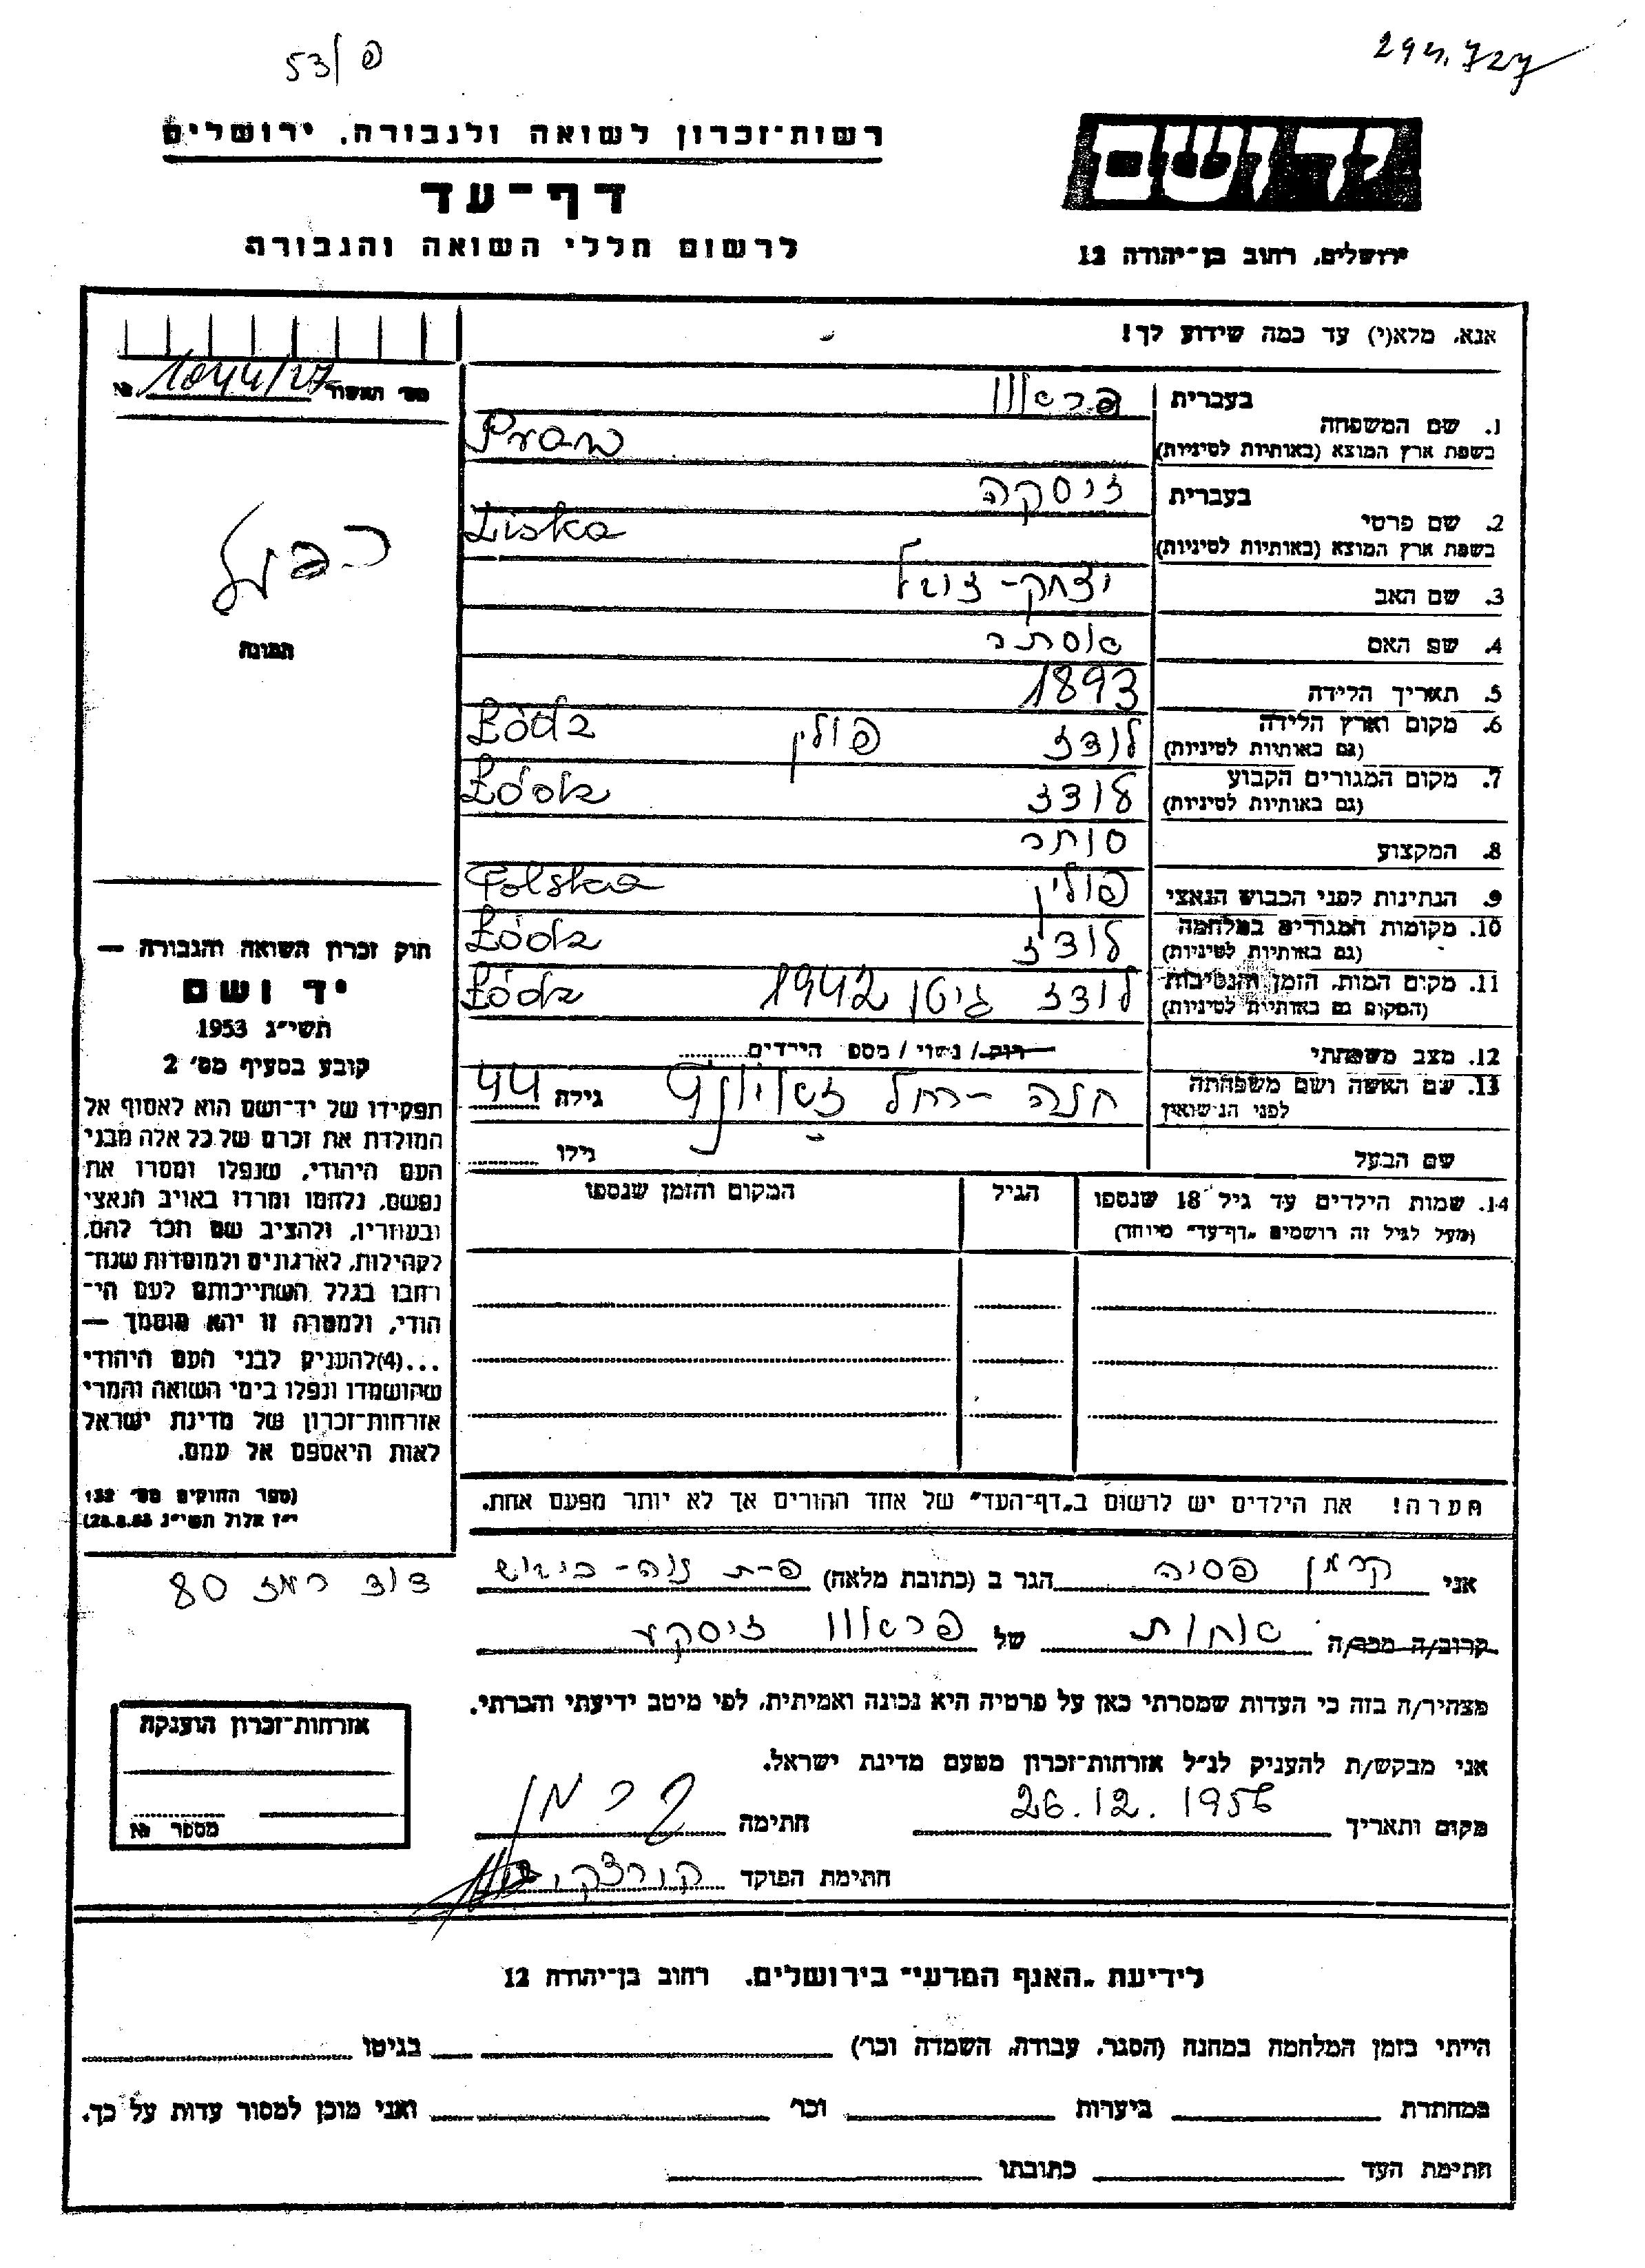 פ/53
294.727
יד ושם
ירושלים, רחוב בן־יהודה 12
רשות־זכרון לשואה ולגבורה, ירושלים
דף־עד
לרשום חללי השואה והגבורה
אנא, מלא(י) עד כמה שידוע לך!
מס׳ האשור 1044/27 №
תמונה
1. שם המשפחה
בעברית פראוו
בשפת ארץ המוצא (באותיות לטיניות) Praw
2. שם פרטי
בעברית זיסקה
בשפת ארץ המוצא (באותיות לטיניות) Ziska
3. שם האב יצחק-זונוול
4. שם האם אסתר
5. תאריך הלידה 1893
6. מקום וארץ הלידה לודז פולין Łódz
(גם באותיות לטיניות)
7. מקום המגורים הקבוע לודז Łódz
(גם באותיות לטיניות)
8. המקצוע סוחר
9. הנתינות לפני הכבוש הנאצי פולין Polska
10. מקומות המגורים במלחמה לודז Łódz
(גם באותיות לטיניות)
11. מקום המות, הזמן והנסיבות לודז גיטו 1942 Łódz
(המקום גם באותיות לטיניות)
12. מצב משפחתי רוק / נשוי / מספ הילדים
13. שם האשה ושם משפחתה חנה-רחל גילה 44
לפני הנישואין
שם הבעל גילו
14. שמות הילדים עד גיל 18 שנספו הגיל המקום והזמן שנספו
(מעל לגיל זה רושמים „דף־עד״ מיוחד)
חוק זכרון השואה והגבורה —
יד ושם
תשי״ג 1953
קובע בסעיף מס׳ 2
תפקידו של יד־ושם הוא לאסוף אל
המולדת את זכרם של כל אלה מבני
העם היהודי, שנפלו ומסרו את
נפשם, נלחמו ומרדו באויב הנאצי
ובעוזריו, ולהציב שם וזכר להם,
לקהילות, לארגונים ולמוסדות שנח־
רבו בגלל השתייכותם לעם הי־
הודי, ולמטרה זו יהא מוסמך —
...(4)להעניק לבני העם היהודי
שהושמדו ונפלו בימי השואה והמרי
אזרחות־זכרון של מדינת ישראל
לאות היאספם אל עמם.
(ספר החוקים מס׳ 132
י״ז אלול תשי״ג 28.8.53)
הערה! את הילדים יש לרשום ב„דף־העד״ של אחד ההורים אך לא יותר מפעם אחת.
אני קרמן פסיה הגר ב (כתובת מלאה) פ-ת נוה-כיבוש
דוד רמז 80
קרוב/ה מכר/ה אחות של פראוו זיסקע
מצהיר/ה בזה כי העדות שמסרתי כאן על פרטיה היא נכונה ואמיתית, לפי מיטב ידיעתי והכרתי.
אני מבקש/ת להעניק לנ״ל אזרחות־זכרון מטעם מדינת ישראל.
מקום ותאריך 26.12.1956 חתימה קרמן
חתימת הפוקד
אזרחות־זכרון הוענקה
מספר №
לידיעת „האגף המדעי״ בירושלים, רחוב בן־יהודה 12
הייתי בזמן המלחמה במחנה (הסגר, עבודה, השמדה וכר׳) בגיטו
במחתרת ביערות וכר׳ ואני מוכן למסור עדות על כך.
חתימת העד כתובתו